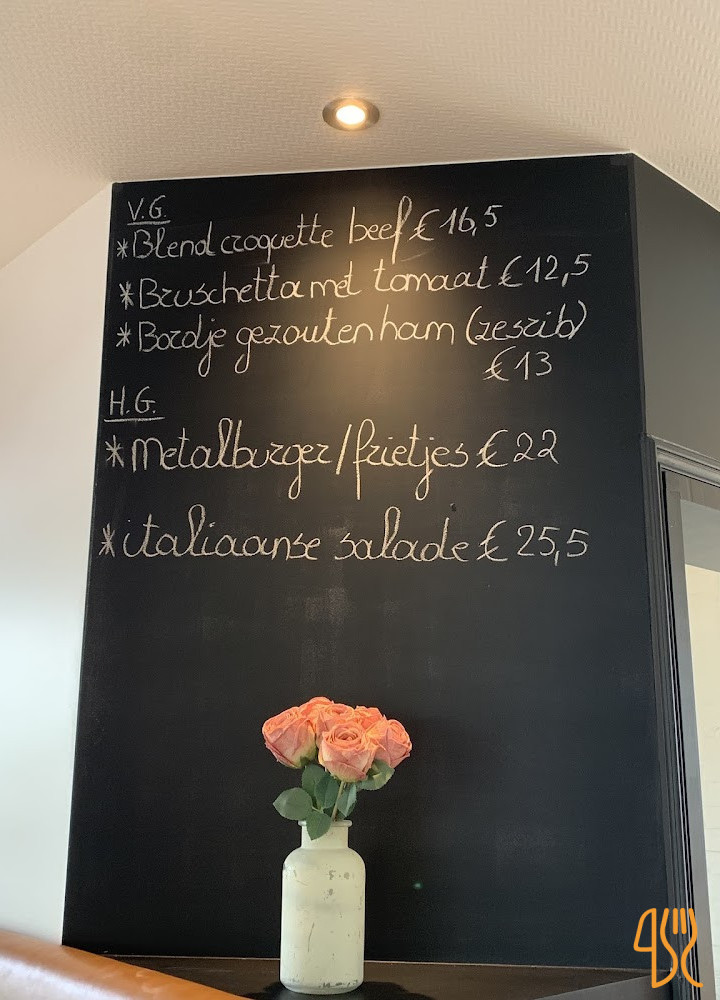 V.G.
*Blend croquette beef € 16,5
*Bruschetta met tomaat € 12,5
*Bordje gezouten ham (zesrib)
€ 13
H.G.
*Metalburger/frietjes € 22
*italiaanse salade € 25,5